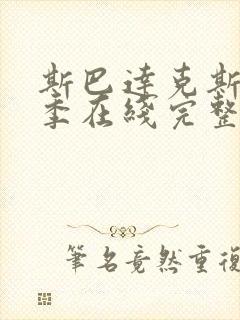 斯巴達克斯
季在綫完整
筆名竟然重復